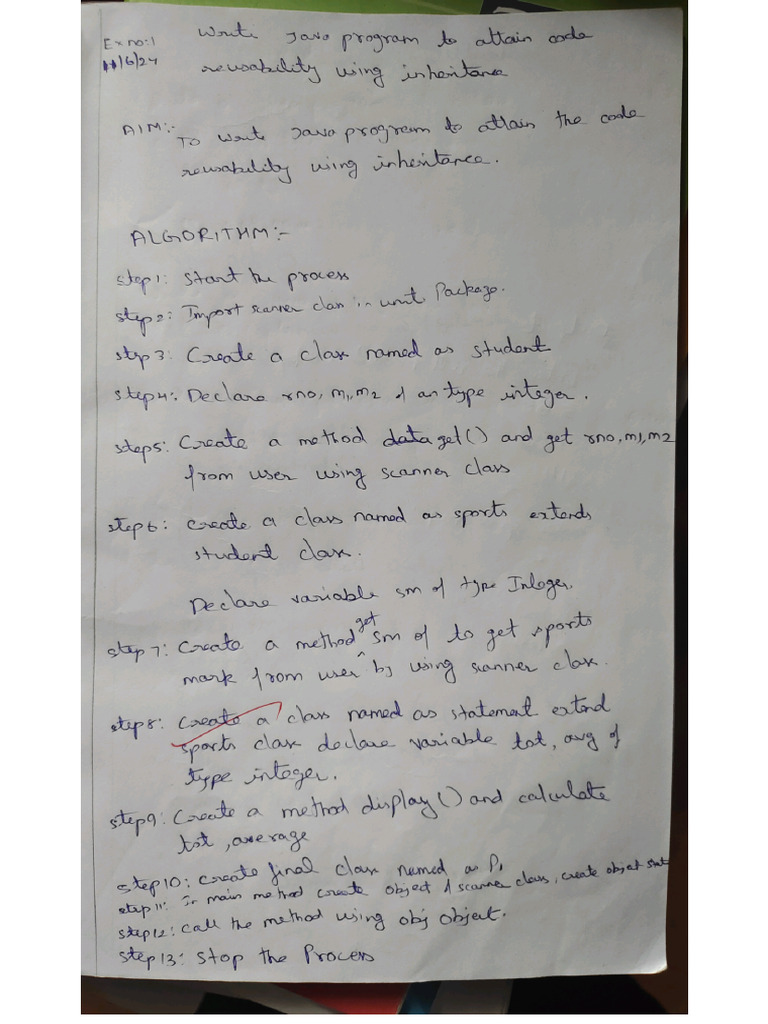 Ex no:1 Write Java program to attain code
11/6/24 reusability using inheritance
AIM:- To write Java program to attain the code
reusability using inheritance.
ALGORITHM:-
step1: Start the process
step2: Import scanner class in unit Package.
step3: Create a class named as student
step4: Declare rno, m1, m2 of an type integer.
step5: Create a method dataget() and get rno, m1, m2
from user using scanner class
step6: create a class named as sports extends
student class.
Declare variable sm of type Integer.
step7: Create a method get sm of to get sports
mark from user by using scanner class.
step8: Create a class named as statement extend
sports class declare variable tot, avg of
type integer.
step9: Create a method display() and calculate
tot, average
step10: create final class named as P1
step11: In main method create object of scanner class, create object
step12: call the method using obj object.
step13: stop the Process